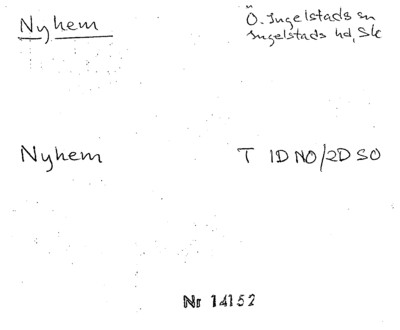 Nyhem
Ö. Ingelstads sn
Ingelstads hd, Sk
Nyhem T 1D NO/2D SO
Nr 14152